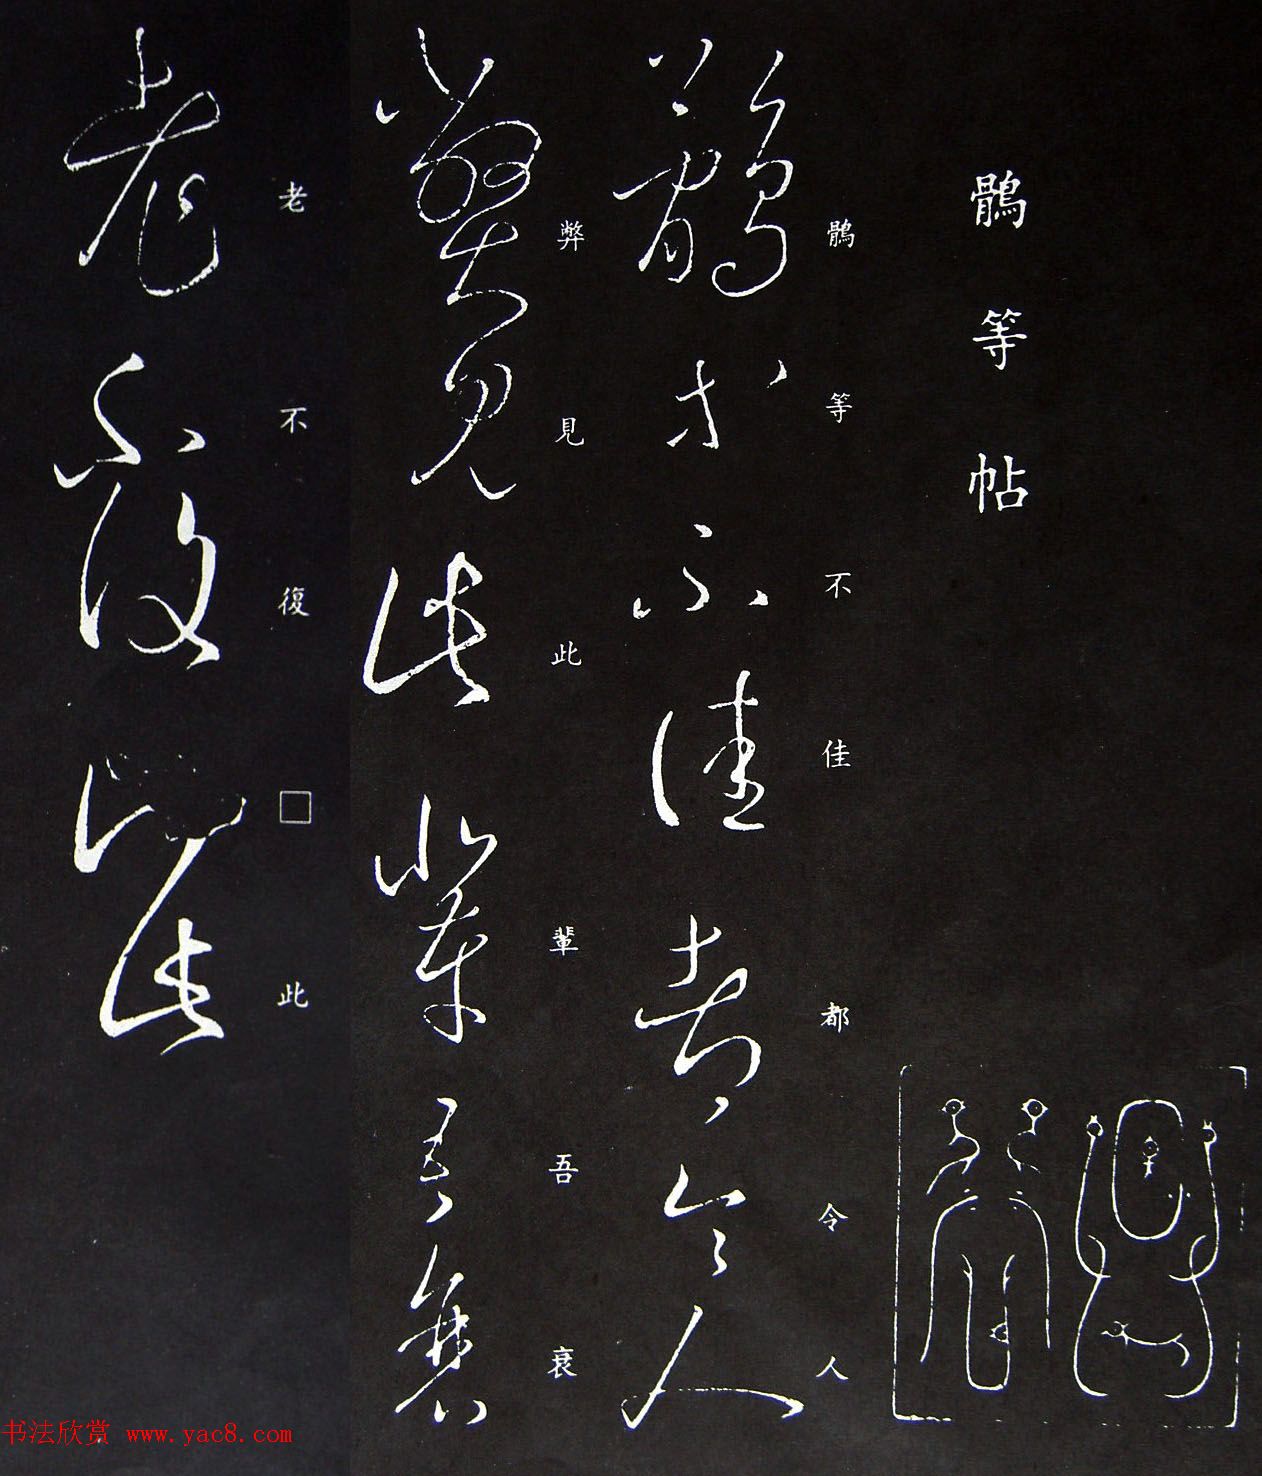 鶻等帖
鶻等不佳都令人
弊見此輩吾衰
老不復□此
书法欣赏 www.yac8.com